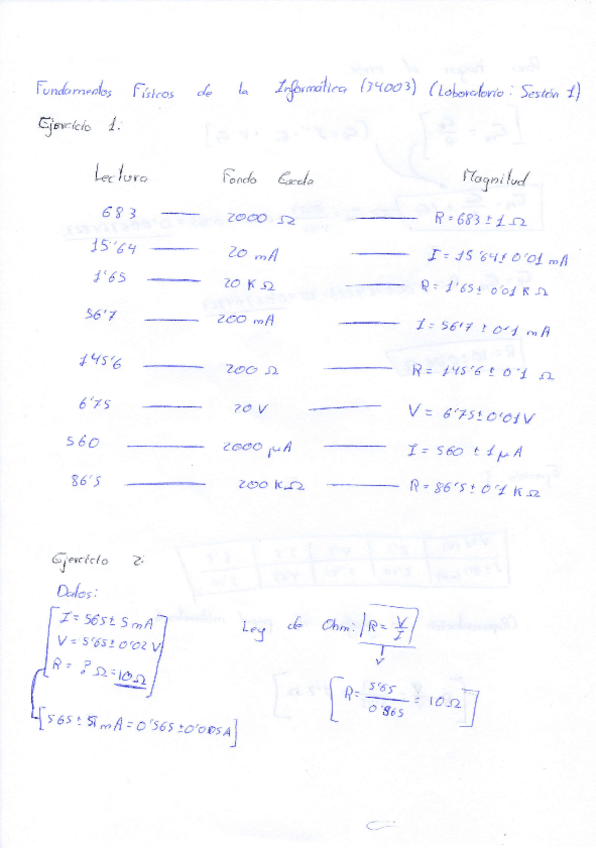 Fundamentos Físicos de la Informática (34003) (Laboratorio: Sesión 1)
Ejercicio 1:
Lectura Fondo Escala Magnitud
683 — 2000 Ω — R = 683 ± 1 Ω
15'64 — 20 mA — I = 15'64 ± 0'01 mA
1'65 — 20 KΩ — R = 1'65 ± 0'01 KΩ
56'7 — 200 mA — I = 56'7 ± 0'1 mA
145'6 — 200 Ω — R = 145'6 ± 0'1 Ω
6'75 — 20 V — V = 6'75 ± 0'01 V
560 — 2000 μA — I = 560 ± 1 μA
86'5 — 200 KΩ — R = 86'5 ± 0'1 KΩ
Ejercicio 2:
Datos:
I = 565 ± 5 mA
V = 5'65 ± 0'02 V
R = ? Ω = 10 Ω
[565 ± 5 mA = 0'565 ± 0'005 A]
Ley de Ohm: R = V/I
[R = 5'65/0'565 = 10 Ω]